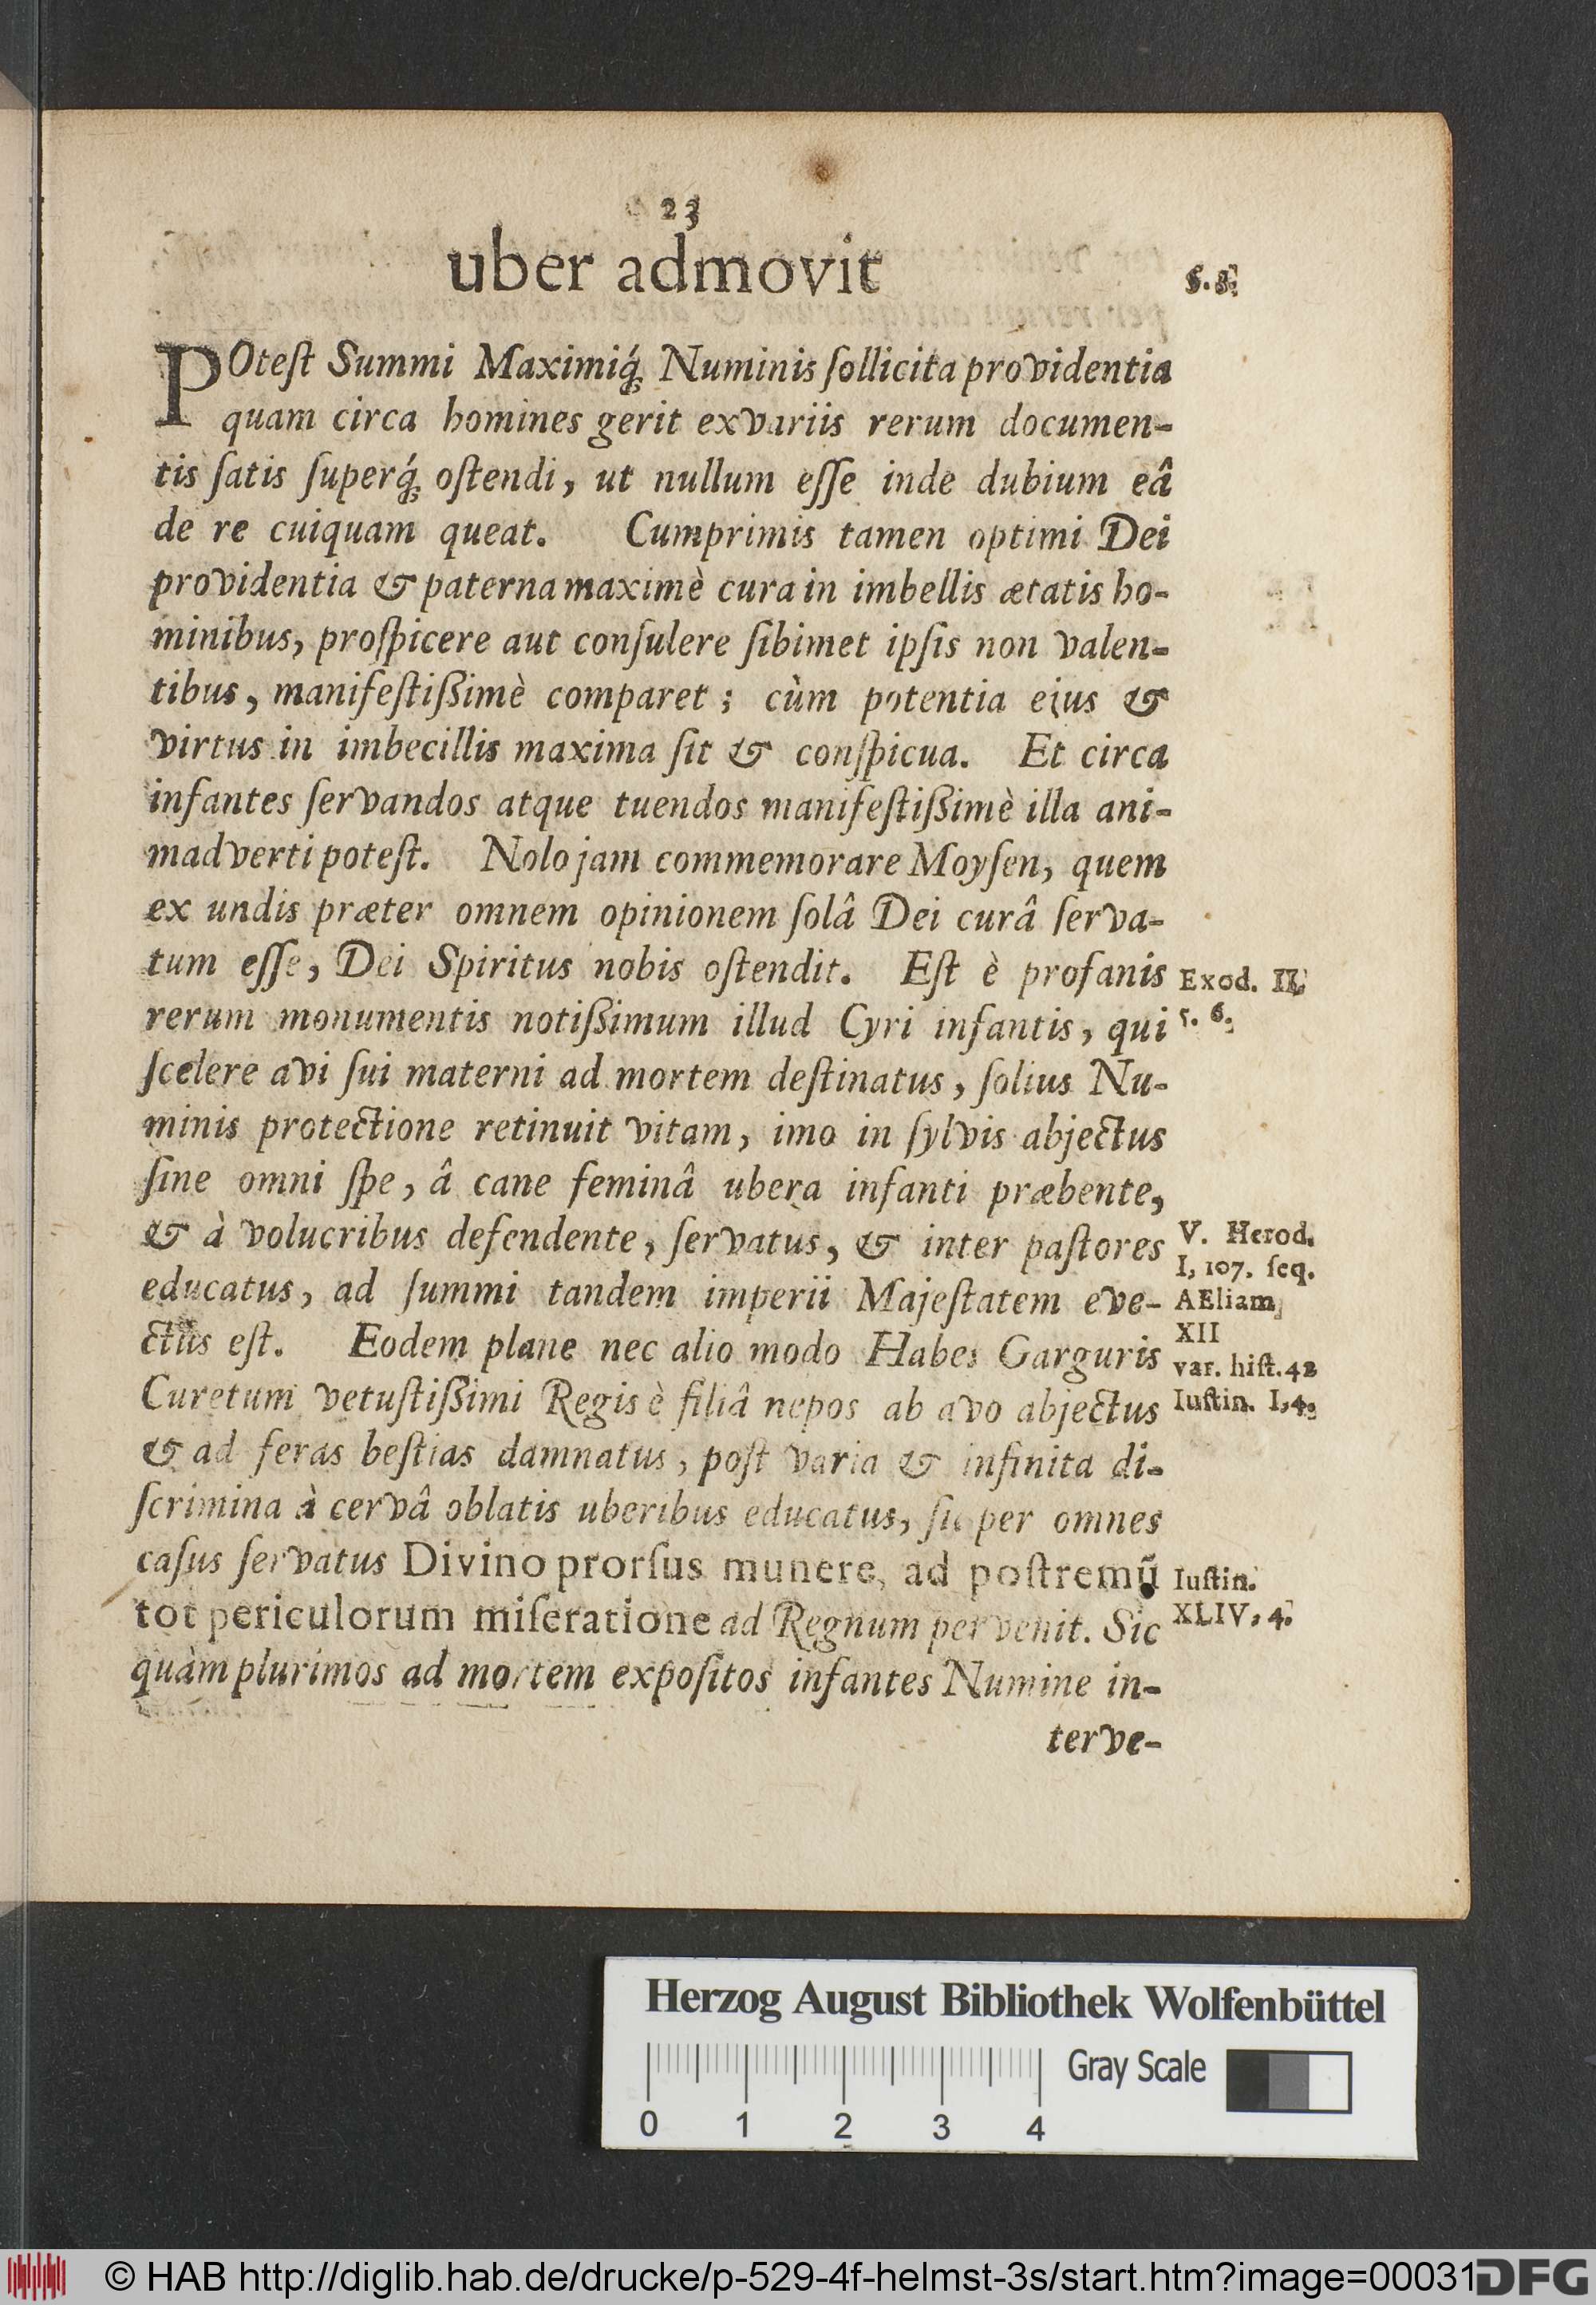 23
uber admovit
§. 5.
POteſt Summi Maximiq́; Numinis ſollicita providentia
quam circa homines gerit exvariis rerum documen-
tis ſatis ſuperq́; oſtendi, ut nullum eſſe inde dubium eâ
de re cuiquam queat. Cumprimis tamen optimi Dei
providentia & paterna maximè cura in imbellis ætatis ho-
minibus, proſpicere aut conſulere ſibimet ipſis non valen-
tibus, manifeſtißimè comparet; cùm potentia ejus &
virtus in imbecillis maxima ſit & conſpicua. Et circa
infantes ſervandos atque tuendos manifeſtißimè illa ani-
madverti poteſt. Nolo jam commemorare Moyſen, quem
ex undis præter omnem opinionem ſolâ Dei curâ ſerva-
tum eſſe, Dei Spiritus nobis oſtendit. Eſt è profanis
Exod. II.
rerum monumentis notißimum illud Cyri infantis, qui
5. 6.
ſcelere avi ſui materni ad mortem deſtinatus, ſolius Nu-
minis protectione retinuit vitam, imo in ſylvis abjectus
ſine omni ſpe, â cane feminâ ubera infanti præbente,
& à volucribus defendente, ſervatus, & inter paſtores
V. Herod.
I, 107. ſeq.
educatus, ad ſummi tandem imperii Majeſtatem eve-
AEliam
XII
ctus eſt. Eodem plane nec alio modo Habes Garguris
var. hiſt. 42
Curetum vetuſtißimi Regis è filiâ nepos ab avo abjectus
Iuſtin. I, 4.
& ad feras beſtias damnatus, poſt varia & infinita di-
ſcrimina à cervâ oblatis uberibus educatus, ſic per omnes
caſus ſervatus Divino prorſus munere, ad poſtremũ
Iuſtin.
tot periculorum miſeratione ad Regnum pervenit. Sic
XLIV, 4.
quàm plurimos ad mortem expoſitos infantes Numine in-
terve-
Herzog August Bibliothek Wolfenbüttel
Gray Scale
0 1 2 3 4
© HAB http://diglib.hab.de/drucke/p-529-4f-helmst-3s/start.htm?image=00031
DFG